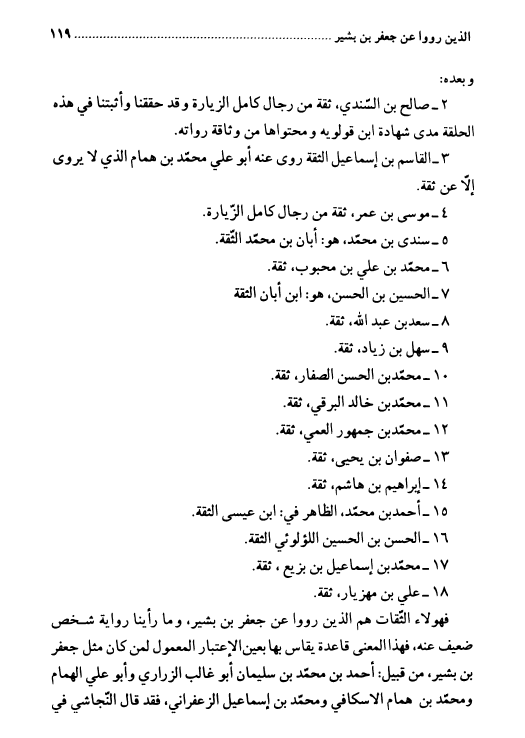 الذين رووا عن جعفر بن بشير ................................................................ ١١٩
وبعده:
٢ ـ صالح بن السّندي، ثقة من رجال كامل الزيارة وقد حققنا وأثبتنا في هذه
الحلقة مدى شهادة ابن قولويه ومحتواها من وثاقة رواته.
٣ ـ القاسم بن إسماعيل الثقة روى عنه أبو علي محمّد بن همام الذي لا يروى
إلّا عن ثقة.
٤ ـ موسى بن عمر، ثقة من رجال كامل الزّيارة.
٥ ـ سندى بن محمّد، هو: أبان بن محمّد الثّقة.
٦ ـ محمّد بن علي بن محبوب، ثقة.
٧ ـ الحسين بن الحسن، هو: ابن أبان الثقة
٨ ـ سعدبن عبد الله، ثقة.
٩ ـ سهل بن زياد، ثقة.
١٠ ـ محمّدبن الحسن الصفار، ثقة.
١١ ـ محمّدبن خالد البرقي، ثقة.
١٢ ـ محمّدبن جمهور العمي، ثقة.
١٣ ـ صفوان بن يحيى، ثقة.
١٤ ـ إبراهيم بن هاشم، ثقة.
١٥ ـ أحمدبن محمّد، الظاهر في: ابن عيسى الثقة.
١٦ ـ الحسن بن الحسين اللؤلوئي الثقة.
١٧ ـ محمّدبن إسماعيل بن بزيع ، ثقة.
١٨ ـ علي بن مهزيار، ثقة.
فهولاء الثّقات هم الذين رووا عن جعفر بن بشير، وما رأينا رواية شخص
ضعيف عنه، فهذا المعنى قاعدة يقاس بها بعين الإعتبار المعمول لمن كان مثل جعفر
بن بشير، من قبيل: أحمد بن محمّد بن سليمان أبو غالب الزراري وأبو علي الهمام
ومحمّد بن همام الاسكافي ومحمّد بن إسماعيل الزعفراني، فقد قال النّجاشي في